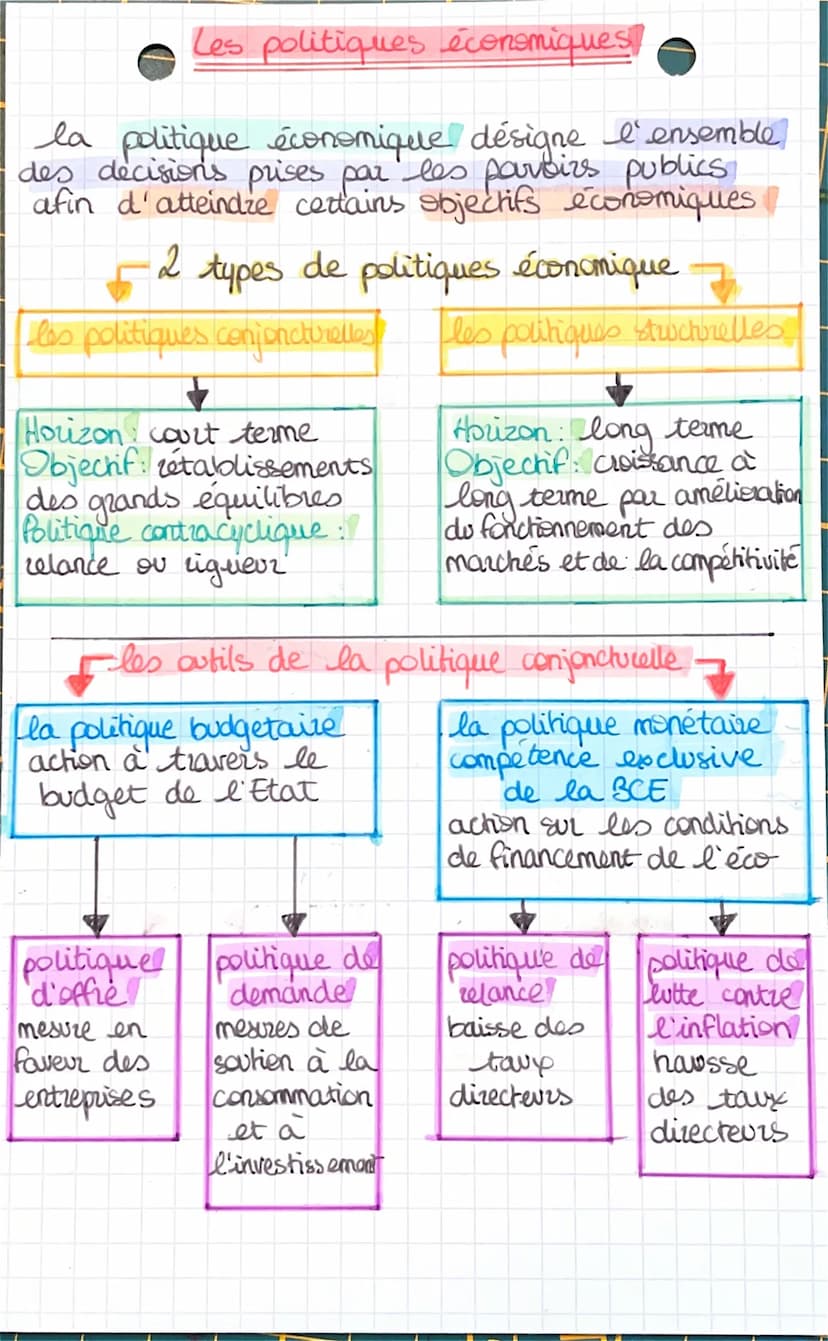 Les politiques économiques
la politique économique désigne l'ensemble
des décisions prises par les pouvoirs publics
afin d'atteindre certains objectifs économiques
2 types de politiques économique
les politiques conjoncturelles
Horizon : court terme
Objectif : rétablissements
des grands équilibres
Politique contracyclique :
relance ou rigueur
les politiques structurelles
Horizon : long terme
Objectif : croistance à
long terme par amélioration
du fonctionnement des
marchés et de la compétitivité
les outils de la politique conjoncturelle
la politique budgétaire
action à travers le
budget de l'Etat
la politique monétaire
compétence exclusive
de la BCE
action sur les conditions
de financement de l'éco
politique
d'offre
mesure en
faveur des
entreprises
politique de
demande
mesures de
soutien à la
consommation
et à
l'investissement
politique de
relance
baisse des
taux
directeurs
politique de
lutte contre
l'inflation
hausse
des taux
directeurs